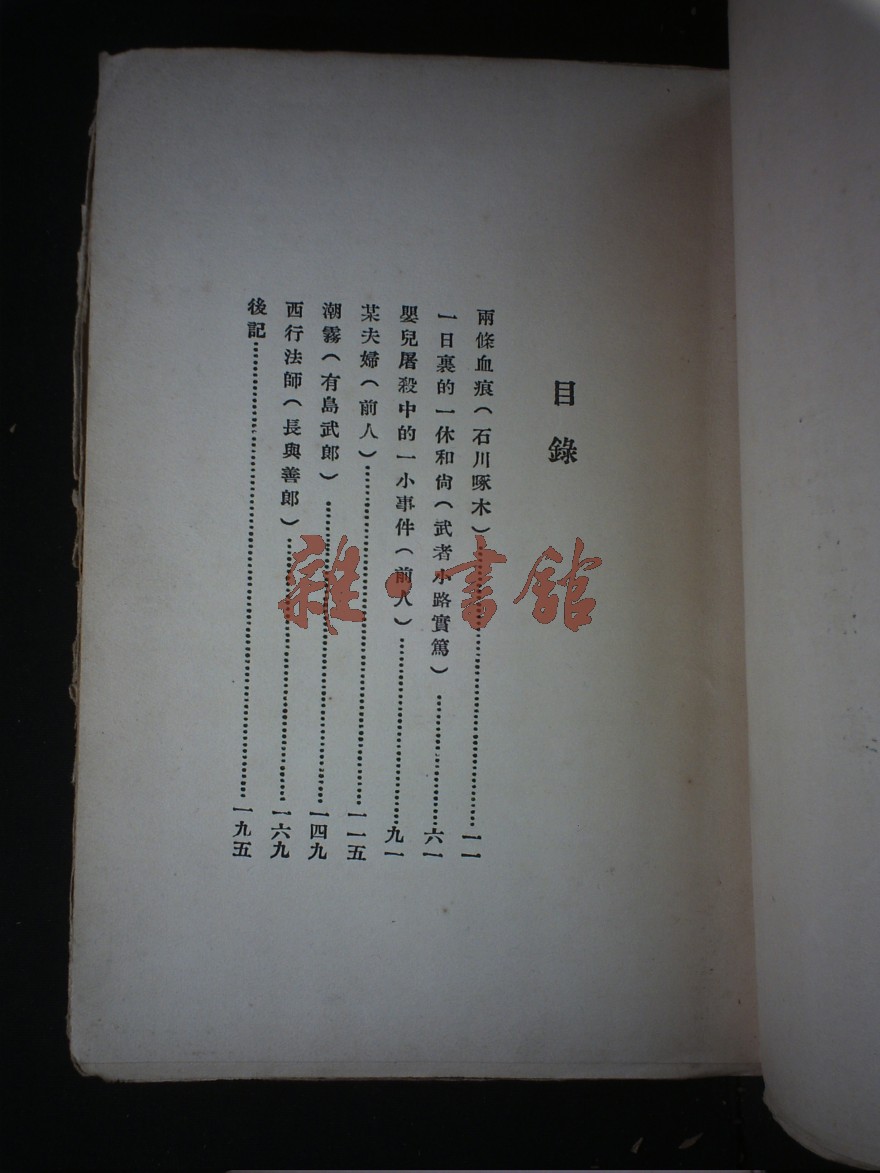 目錄
兩條血痕(石川啄木)…………一一
一日裏的一休和尙(武者小路實篤)…………六一
嬰兒屠殺中的一小事件(前人)…………九一
某夫婦(前人)…………一一五
潮霧(有島武郎)…………一四九
西行法師(長與善郎)…………一六九
後記…………一九五
雜·書館